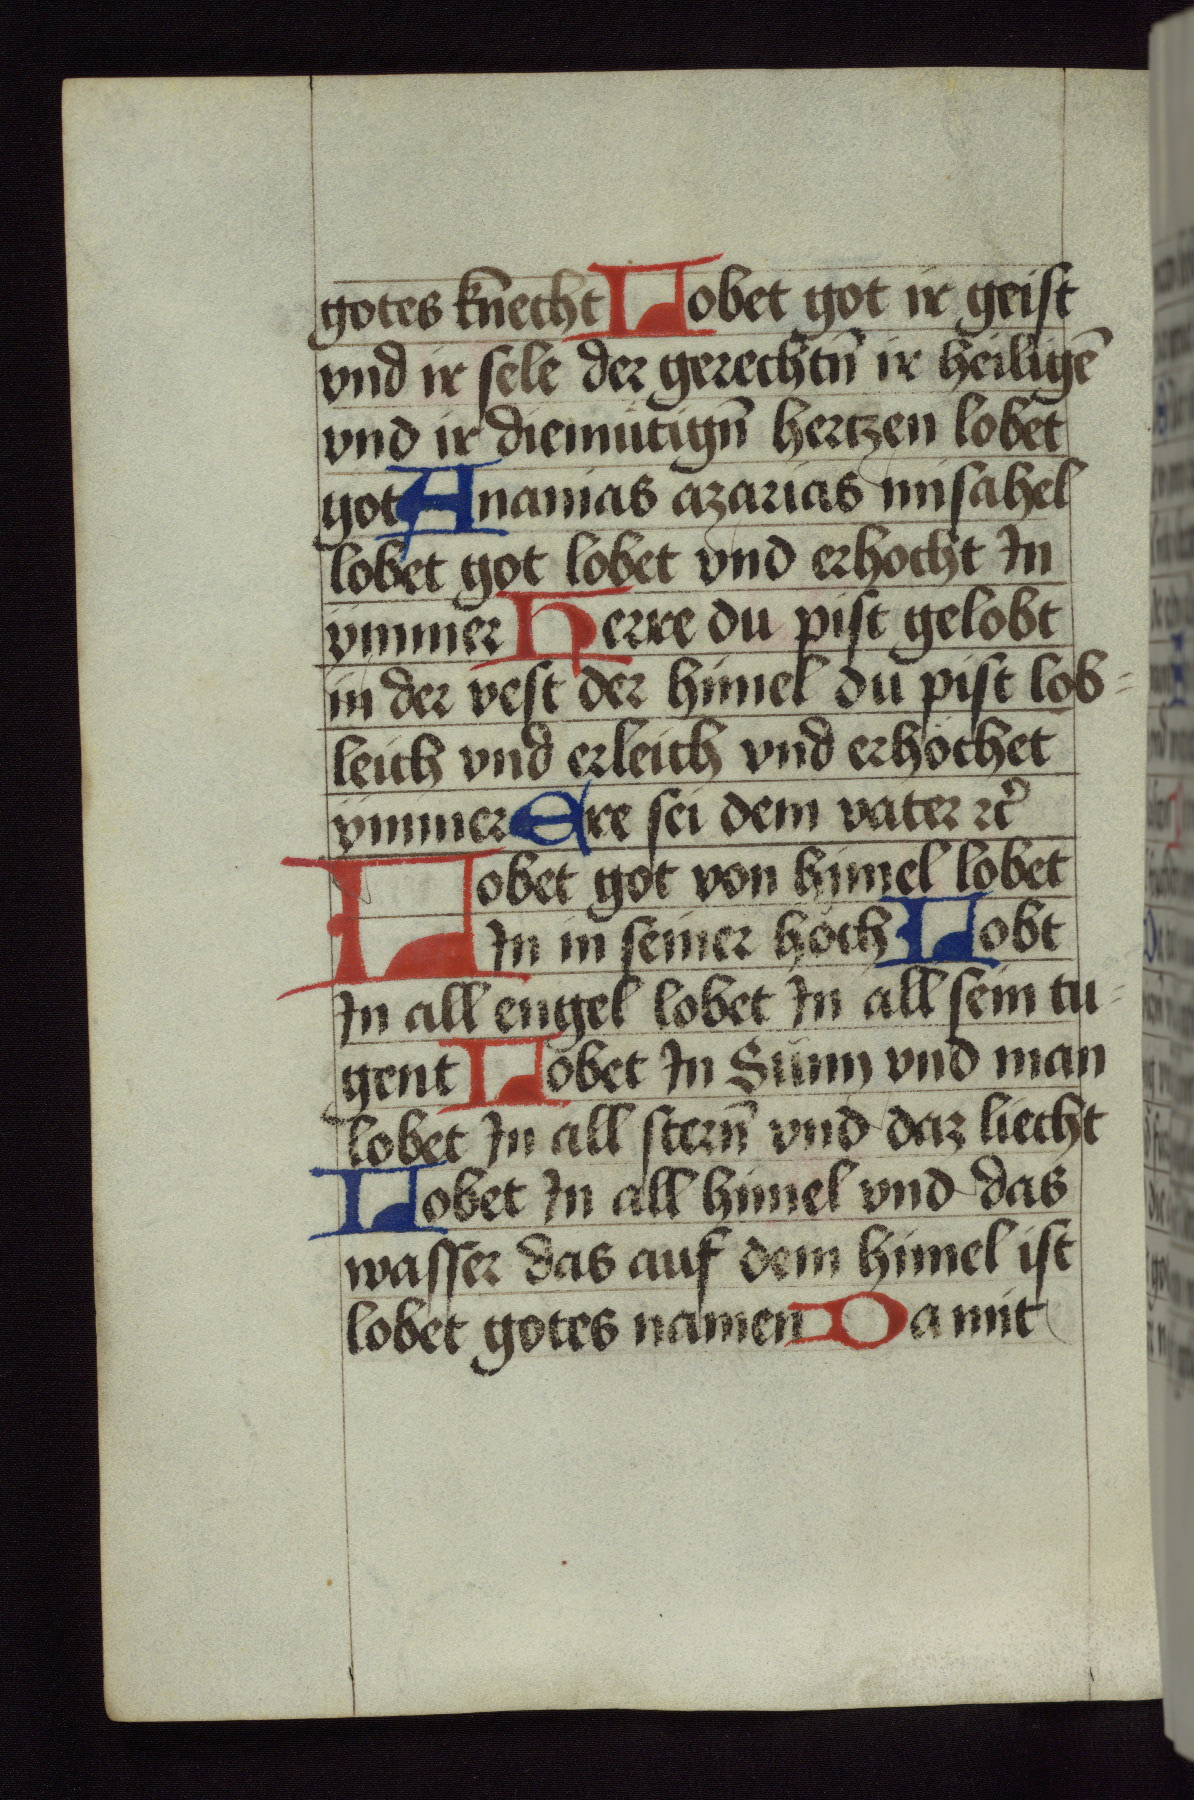 gotes kn̄echt Lobet got ir geist
vnd ir sele der gerechtn̄ ir heiligē
vnd ir diemütign̄ hertzen lobet
got Ananias azarias misahel
lobet got lobet vnd erhocht In
ymmer Herre du pist gelobt
in der vest der himel du pist lob=
leich vnd erleich vnd erhöchet
ymmer Ere sei dem vater ⁊c̄
Lobet got von himel lobet
In in seiner höch Lobt
In all engel lobet In all sein tu=
gent Lobet In Sunn vnd man
lobet In all stern̄ vnd daz liecht
Lobet In all himel vnd das
wasser das auf dem himel ist
lobet gotes namen Da mit